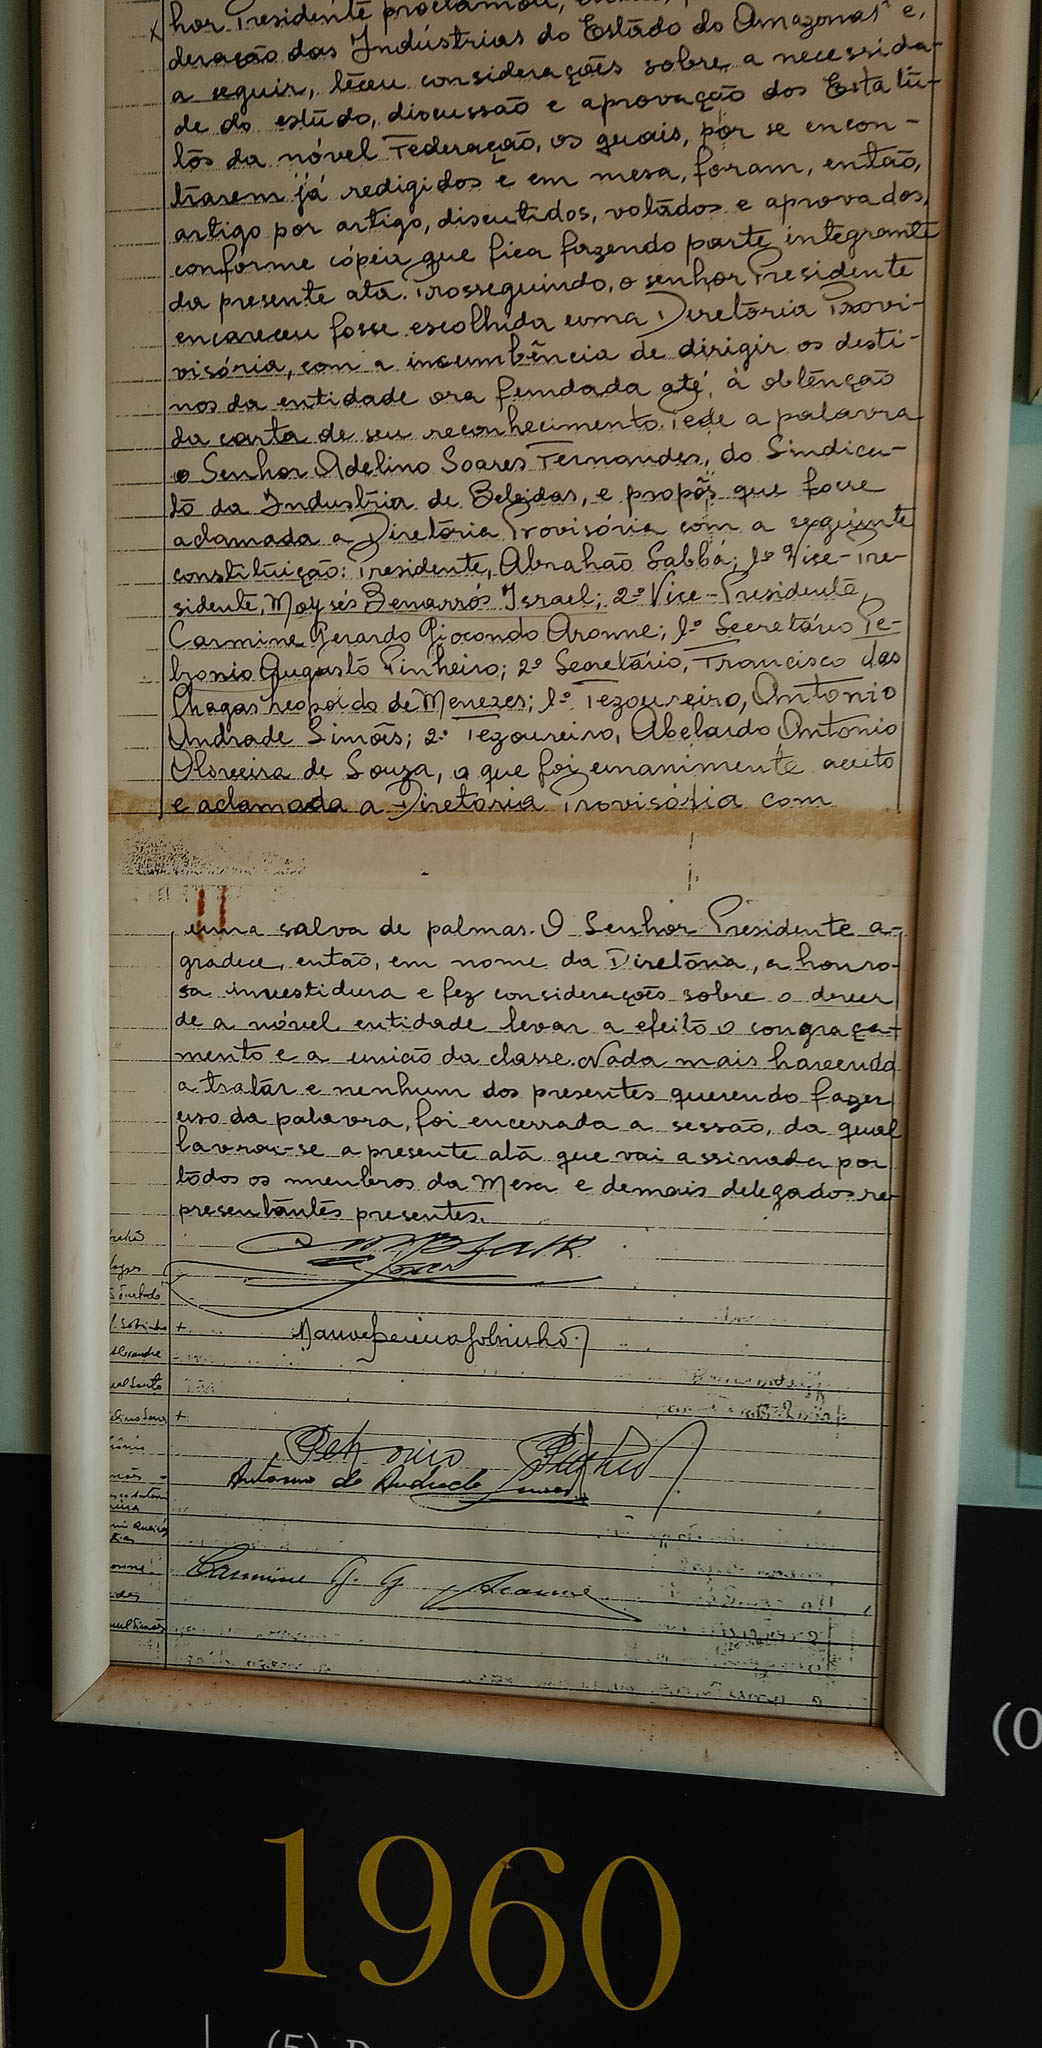 hor Presidente proclamou,
deração das Indústrias do Estado do Amazonas" e,
a seguir, teceu considerações sobre a necessida-
de do estudo, discussão e aprovação dos Estatu-
tos da nóvel Federação, os quais, por se encon-
trarem já redigidos e em mesa, foram, então,
artigo por artigo, discutidos, votados e aprovados,
conforme cópia que fica fazendo parte integrante
da presente ata. Prosseguindo, o senhor Presidente
encareceu fosse escolhida uma Diretoria Provi-
visória, com a incumbência de dirigir os desti-
nos da entidade ora fundada até, à obtenção
da carta de seu reconhecimento. Pede a palavra
o Senhor Adelino Soares Fernandes, do Sindica-
to da Industria de Bebidas, e propôs que fosse
aclamada a Diretória Provisória com a seguinte
constituição: Presidente, Abrahão Sabbá; 1º Vice-Pre-
sidente, Moysés Benarrós Israel; 2º Vice-Presidente,
Carmine Gerardo Giocondo Aronne; 1º Secretário Pe-
tronio Augusto Pinheiro; 2º Secretário, Francisco das
Chagas Leopoldo de Menezes; 1º Tezoureiro, Antonio
Andrade Simões; 2º Tezoureiro, Abelardo Antonio
Oliveira de Souza, o que foi unanimente aceito
e aclamada a Diretoria Provisória com
uma salva de palmas. O Senhor Presidente a-
gradece, então, em nome da Diretória, a honro-
sa investidura e fez considerações sobre o dever
de a nóvel entidade levar a efeito o congraça-
mento e a união da classe. Nada mais havendo
a tratar e nenhum dos presentes querendo fazer
uso da palavra, foi encerrada a sessão, da qual
lavrou-se a presente ata que vai assinada por
todos os membros da Mesa e demais delegados re-
presentantes presentes.
Petronio Pinheiro
Antonio de Andrade Simões
Carmine G. G. Aronne
(0
1960
(5)